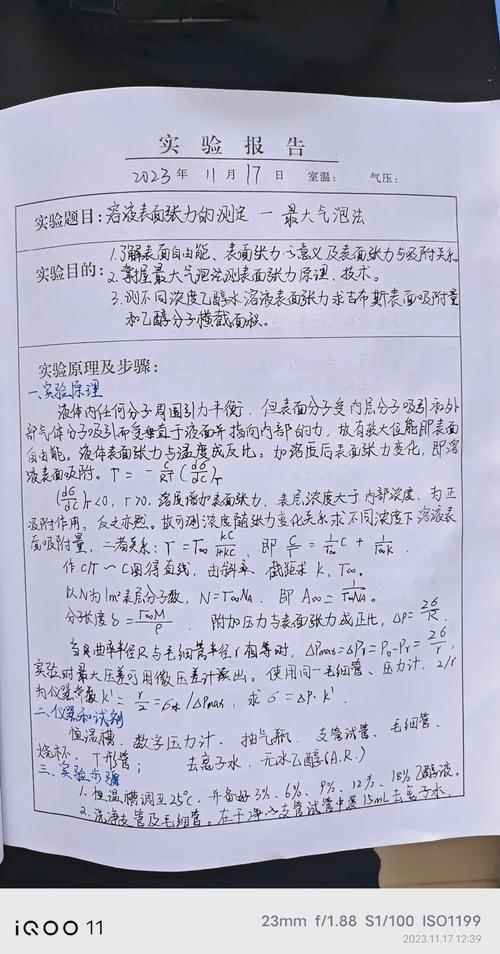 实验报告
2023年 11月 17日 室温: 气压:
实验题目: 溶液表面张力的测定 — 最大气泡法
实验目的: 1.了解表面自由能、表面张力之意义及表面张力与吸附关系
2.掌握最大气泡法测表面张力原理、技术。
3.测不同浓度乙醇水溶液表面张力求吉布斯表面吸附量
和乙醇分子横截面积。
实验原理及步骤:
一、实验原理
液体内任何分子周围引力平衡,但表面分子受内层分子吸引和外
部气体分子吸引而受垂直于液面并指向内部的力,故有较大位能即表面
自由能。液体表面张力与温度成反比。加溶质后表面张力变化,即溶
液表面吸附。Γ = -C/RT (dσ/dC)T
(dσ/dC)T<0, Γ>0, 溶质增加表面张力,表层浓度大于内部浓度,为正
吸附作用,反之亦然。故可测浓度随张力变化关系求不同浓度下溶液表
面吸附量,二者关系:Γ=Γ∞ KC/(1+KC), 即 C/Γ = 1/Γ∞ C + 1/Γ∞K
作C/Γ~C图得直线,由斜率、截距求K、Γ∞。
以N为1m²表层分子数,N=Γ∞NA, 即 A∞= 1/Γ∞NA。
分子长度δ= Γ∞M/ρ 附加压力与表面张力成正比,ΔP= 2σ/R.
当曲率半径R与毛细管半径r相等时,ΔPmax=ΔPr=P0-Pr= 2σ/r,
实验时最大压差可用微压差计读出。使用同一毛细管、压力计,2/r
为仪器常数K'= r/2 =σ水/ΔPmax, 求σ=ΔP·K'
二、仪器和试剂
恒温槽、数字压力计、抽气瓶、支管试管、毛细管、
烧杯、T形管; 去离子水、无水乙醇(A.R.)
三、实验步骤
1.恒温槽调至25℃,并备好3%、6%、9%、12%、18%乙醇液。
2.洗净支管及毛细管。在干净支管试管中装15mL去离子水,
iQOO 11
23mm f/1.88 S1/100 ISO1199
2023.11.17 12:39